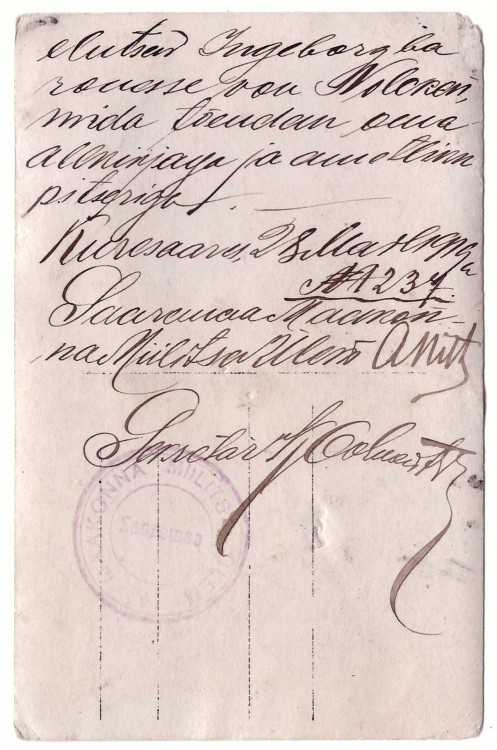 elutsev Ingeborg ba
ronesse von Nolcken,
mida tõendan oma
allkirjaga ja ametlikku
pitseriga.
Kuresaares, 28. Mail 191
№ 1237.
Saaremaa Maakon
na Miilitsa Ülem
Sekretär
MAAKONNA MIILITSA ÜLEM
Saaremaa